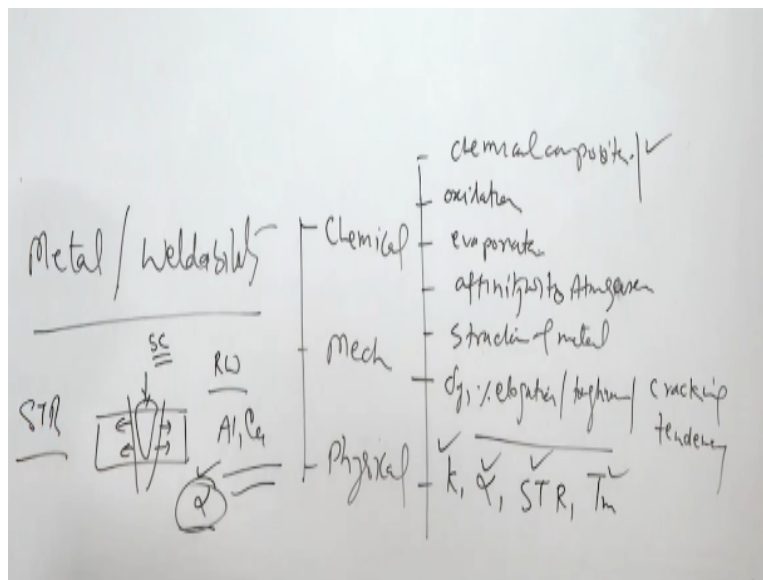 Metal / Weldability
SC
STR
RW
Al, Cu
α
Chemical
Mech
Physical
chemical composition /
oxidation
evaporation
affinity with to Atm gases
structure of metal
σy, % elogation / toughness / cracking tendency
k, α, STR, Tm